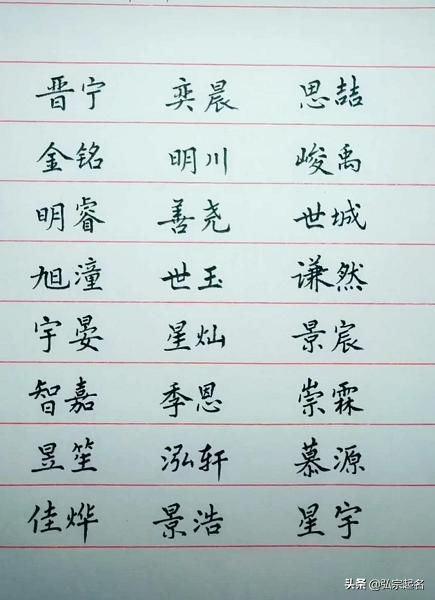 晋宁 奕晨 思喆
金铭 明川 峻禹
明睿 善尧 世城
旭潼 世玉 谦然
宇晏 星灿 景宸
智嘉 季恩 崇霖
昱笙 泓轩 慕源
佳烨 景浩 星宇
头条 @弘宗起名